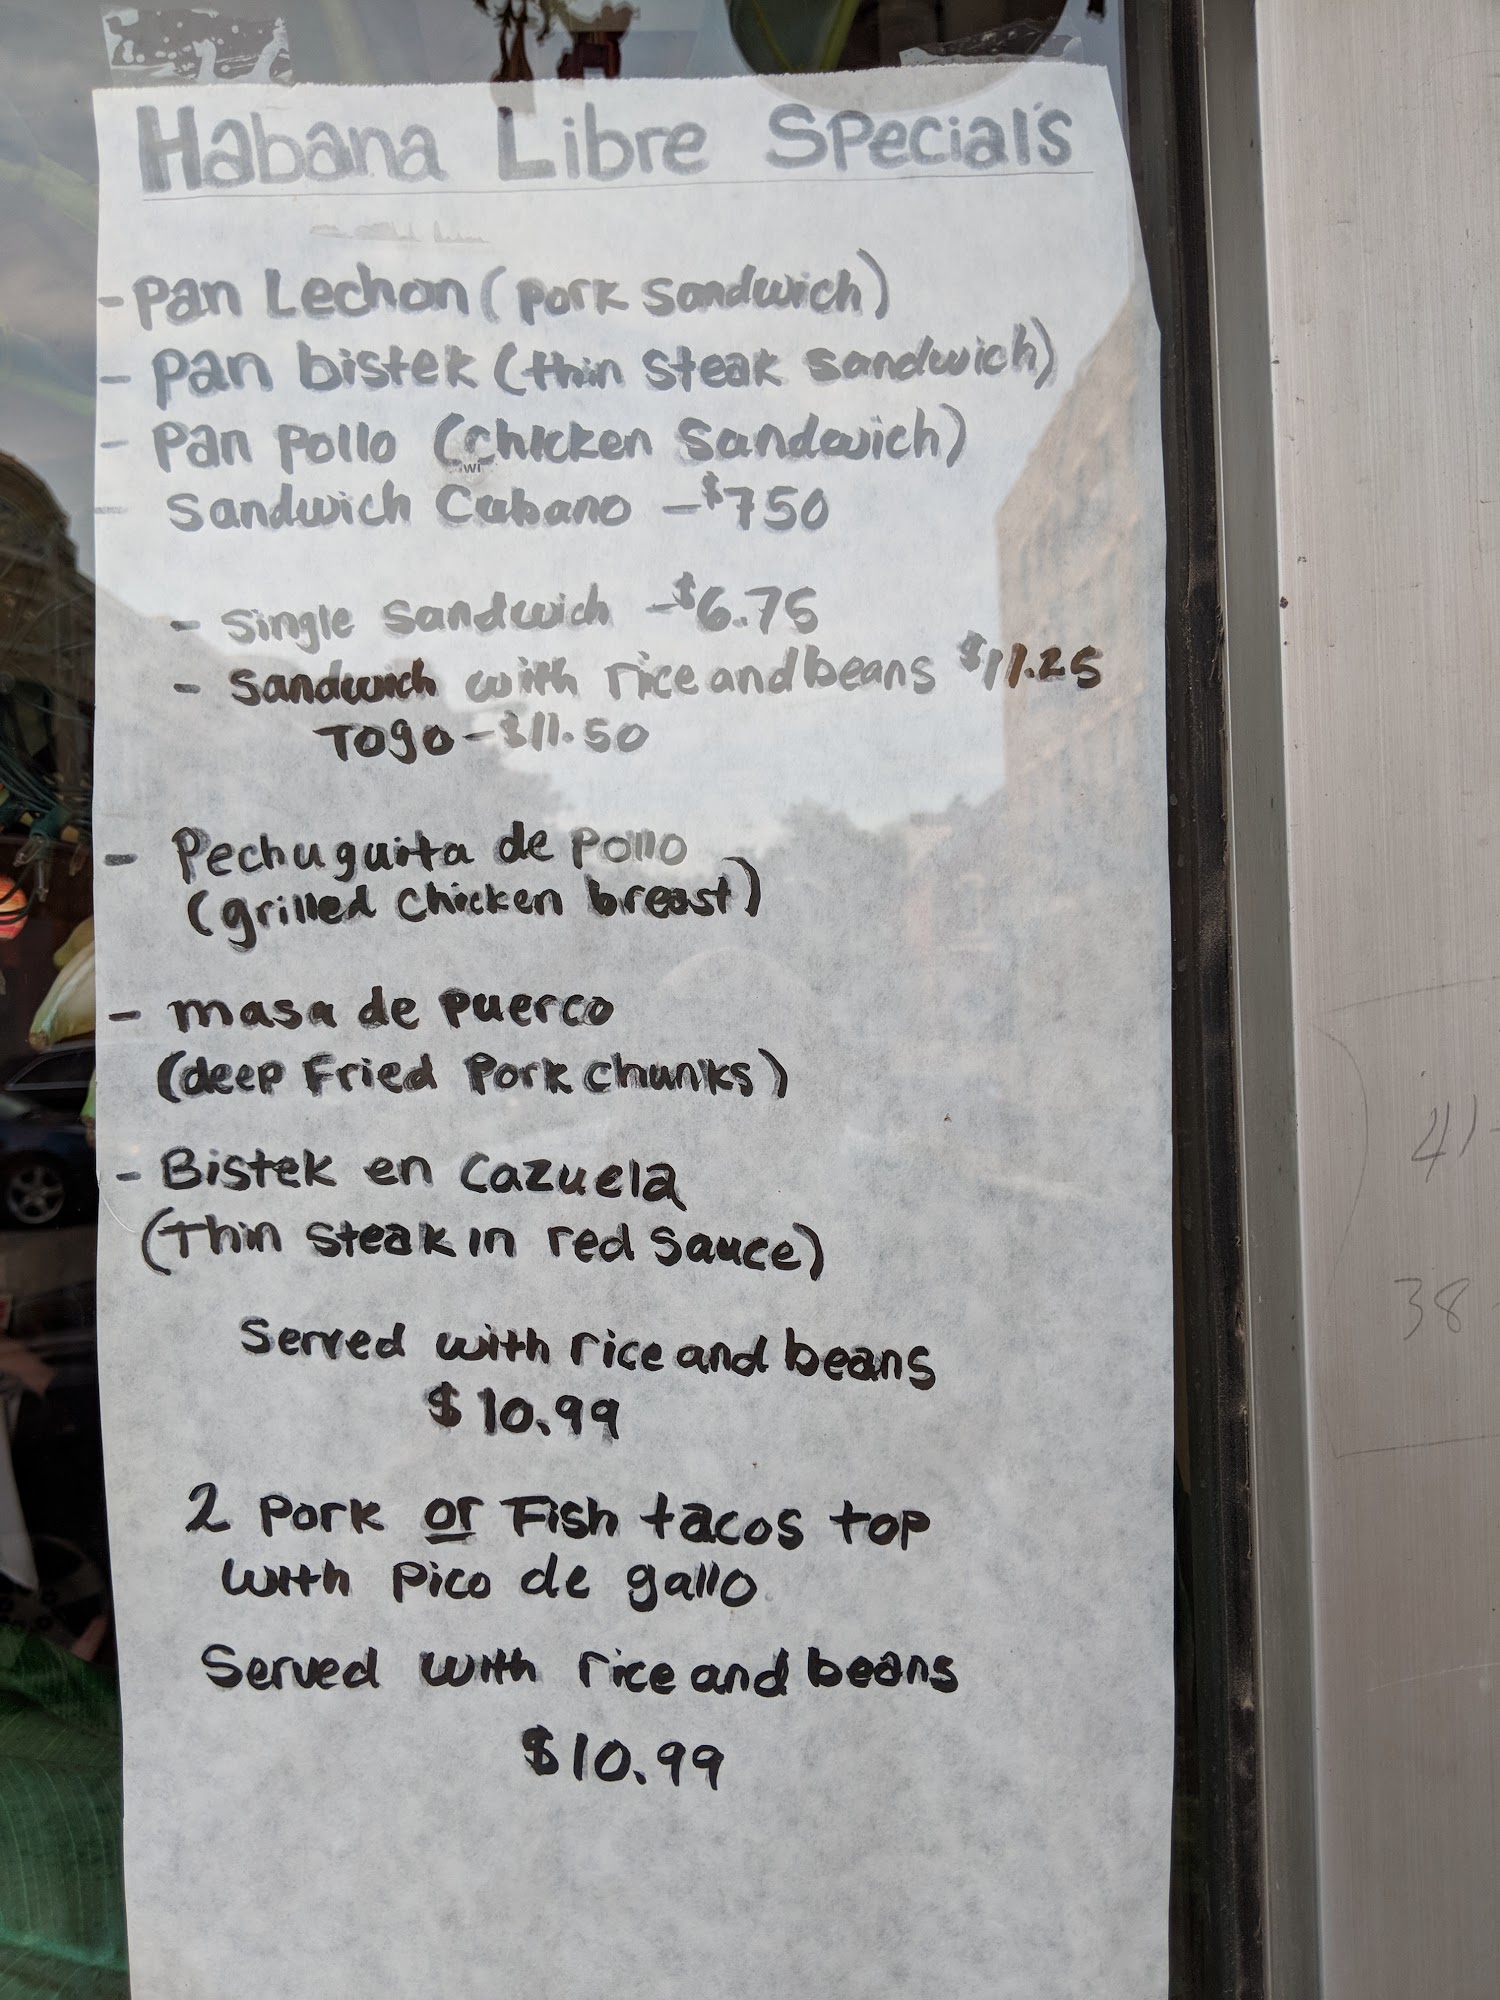 Habana Libre Special's
- Pan Lechon (pork sandwich)
- Pan bistek (thin steak sandwich)
- Pan pollo (chicken sandwich)
- Sandwich Cubano -$750
- Single sandwich -$6.75
- Sandwich with rice and beans $11.25
Togo -$11.50
- Pechuguita de pollo
(grilled chicken breast)
- masa de puerco
(deep Fried Pork chunks)
- Bistek en Cazuela
(Thin steak in red sauce)
Served with rice and beans
$10.99
2 Pork or Fish tacos top
with pico de gallo
Served with rice and beans
$10.99
41
38